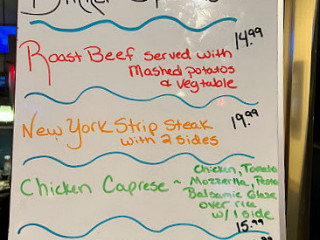 Roast Beef served with 14.99
Mashed potatos
& vegtable
New York Strip Steak 19.99
with 2 sides
Chicken Caprese ~ Chicken, Tomato
Mozzerlla, Pesto
Balsamic Glaze
over rice
w/ 1 side
15.99